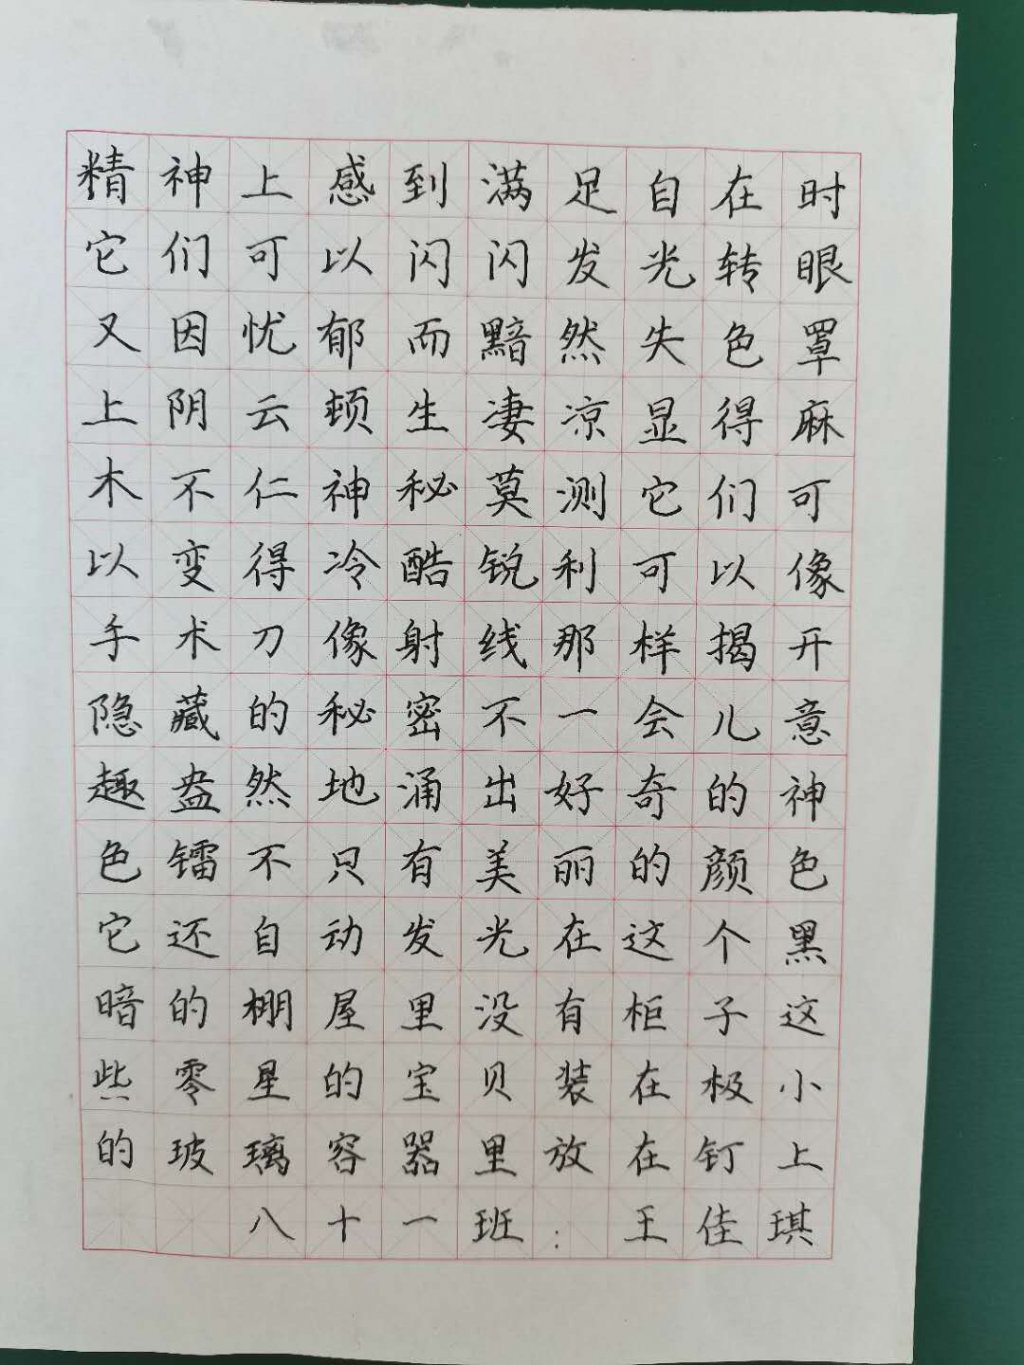 精神上感到满足自在时
它们可以闪闪发光转眼
又因忧郁而黯然失色罩
上阴云顿生凄凉显得麻
木不仁神秘莫测它们可
以变得冷酷锐利可以像
手术刀像射线那样揭开
隐藏的秘密不一会儿意
趣盎然地涌出好奇的神
色镭不只有美丽的颜色
它还自动发光在这个黑
暗的棚屋里没有柜子这
些零星的宝贝装在极小
的玻璃容器里放在钉上
八十一班：王佳琪